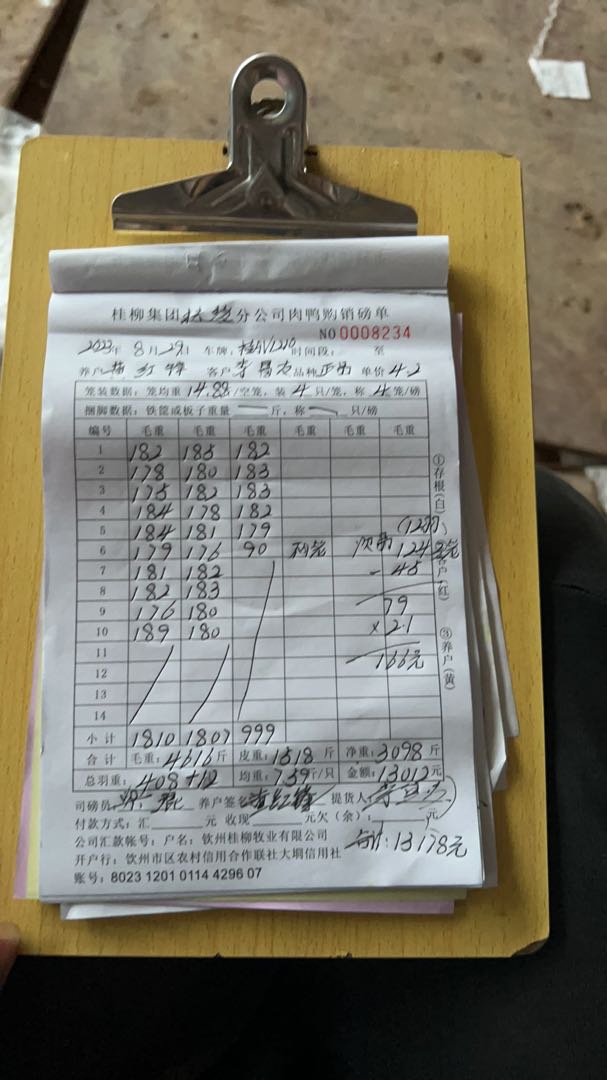 桂柳集团 分公司肉鸭购销磅单
NO 0008234
2023年 8月29日 车牌: 时间段: 至
养户 客户 品种 单价 4.2
笼装数据: 笼均重 14.88/空笼, 装 4 只/笼, 称 4 笼/磅
捆脚数据: 铁筐或板子重量 — 斤, 称 只/磅
编号 毛重 毛重 毛重 毛重 毛重 毛重
1 182 185 182
2 178 180 183
3 175 182 183
4 184 178 182
5 184 181 179 (12羽)
6 179 176 90 124
7 181 182 - 45
8 182 183
9 176 180 79
10 189 180 ×2.1
11 166元
12
13
14
小计 1810 1807 999
合计 毛重: 4616 斤 皮重: 1518 斤 净重: 3098 斤
总羽重: 408+12 均重: 7.59斤/只 金额: 13012元
司磅员: 养户签名 提货人
付款方式: 汇 元 收现 元欠(余): 元
公司汇款帐号: 户名: 钦州桂柳牧业有限公司
合计: 13178元
开户行: 钦州市区农村信用合作联社大垌信用社
账号: 8023 1201 0114 4296 07
①存根(白)
客户(红)
③养户(黄)